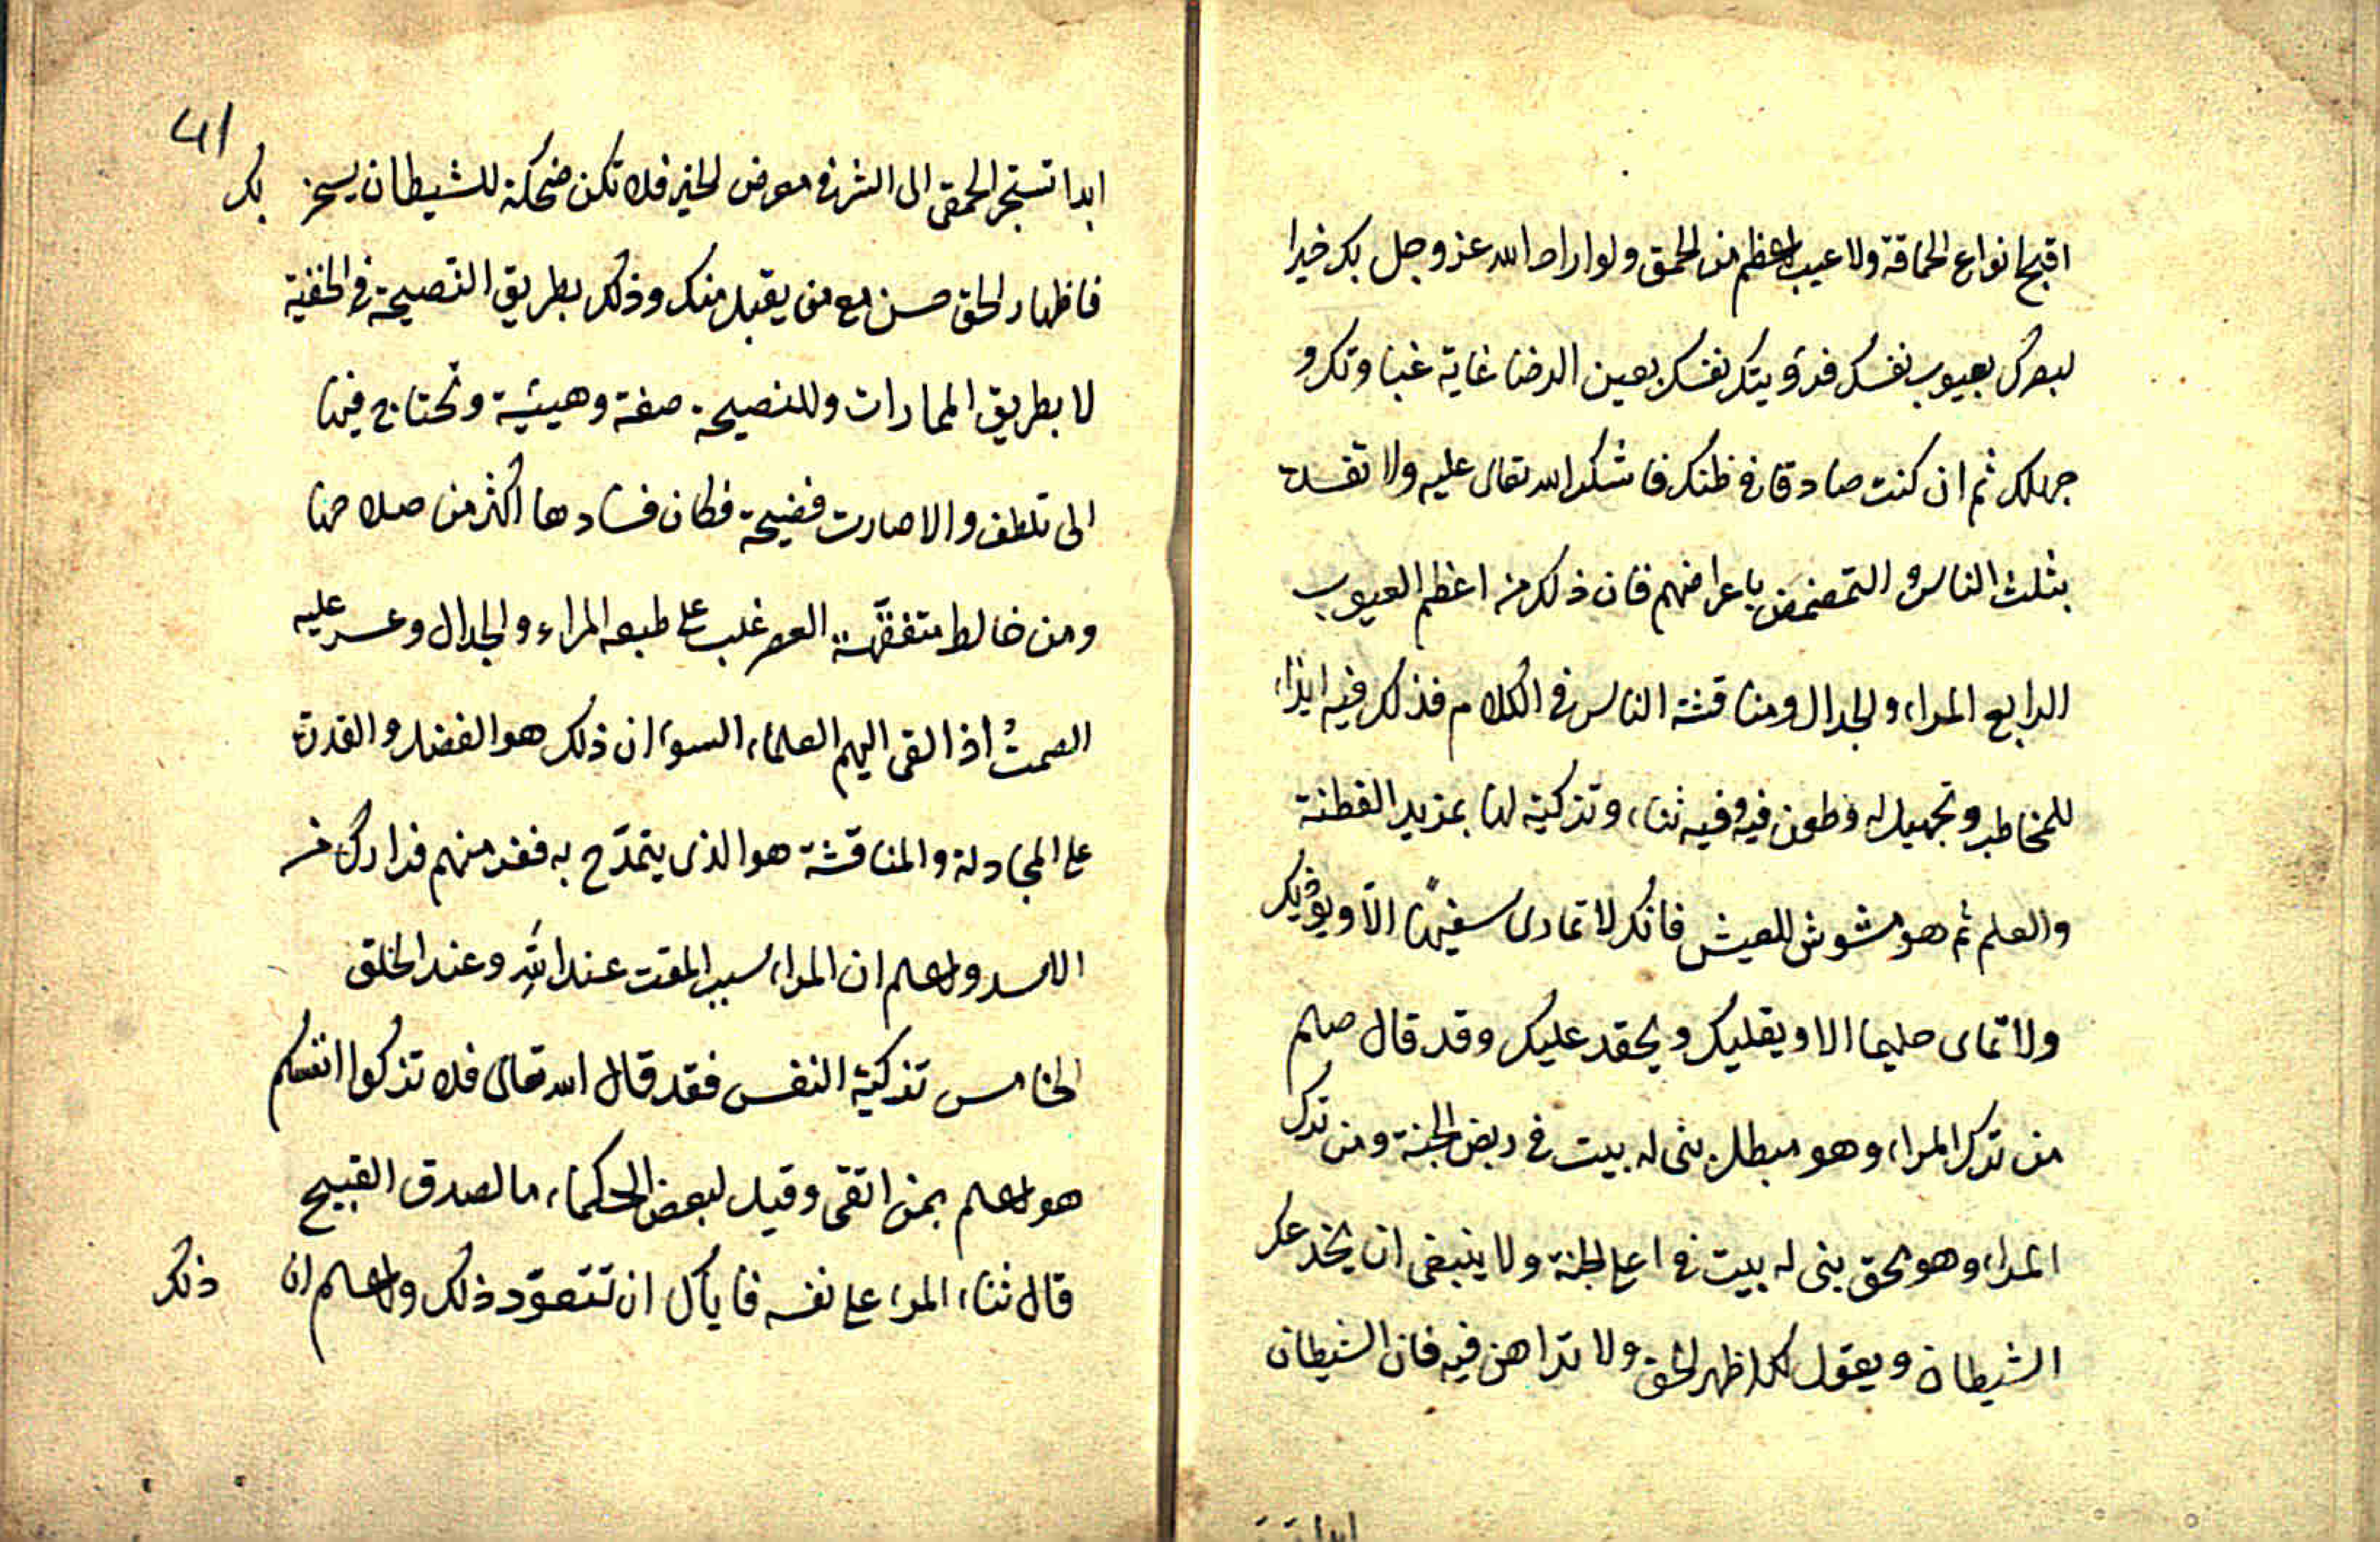 اقبح انواع الحماقة ولا عيب اعظم من الحمق ولو اراد الله عز وجل بك خيرا
لبصرك بعيوب نفسك فرؤيتك نفسك بعين الرضا غاية غباوتك و
جهلك ثم ان كنت صادقا في ظنك فاشكر الله تعالى عليه ولا تفسده
بثلب الناس و التمضمض باعراضهم فان ذلك من اعظم العيوب
الرابع المراء والجدال ومناقشة الناس في الكلام فذلك فيه ايذاء
للمخاطب وتجهيل له وطعن فيه وفيه ثناء وتزكية لها بمزيد الفطنة
والعلم ثم هو مشوش للعيش فانك لا تمارى سفيها الا ويؤذيك
ولا تمارى حليما الا ويقليك ويحقد عليك وقد قال صلعم
من ترك المراء وهو مبطل بنى له بيت في ربض الجنة ومن ترك
المراء وهو محق بنى له بيت في اعلى الجنة ولا ينبغى ان يخدعك
الشيطان ويقول لك اظهر الحق ولا تداهن فيه فان الشيطان
ابدا
41
ابدا تستجر الحمقى الى الشر في معرض الخير فلا تكن ضحكة للشيطان يسخر بك
فاظهار الحق حسن مع من يقبل منك وذلك بطريق النصيحة في الخفية
لا بطريق الممارات وللنصيحة صفة وهيئية وتحتاج فيها
الى تلطف والا صارت فضيحة فكان فسادها اكثر من صلاحها
ومن خالط متفقهة العصر غلب على طبعه المراء والجدال وعسر عليه
الصمت اذا القى اليهم العلماء السوء ان ذلك هو الفضل والقدرة
على المجادلة والمناقشة هو الذى يتمدح به ففر منهم فرارك من
الاسد واعلم ان المراء سبب المقت عند الله وعند الخلق
الخامس تزكية النفس فقد قال الله تعالى فلا تزكوا انفسكم
هو اعلم بمن اتقى وقيل لبعض الحكماء ما الصدق القبيح
قال ثناء المرء على نفسه فاياك ان تتعود ذلك واعلم ان ذلك